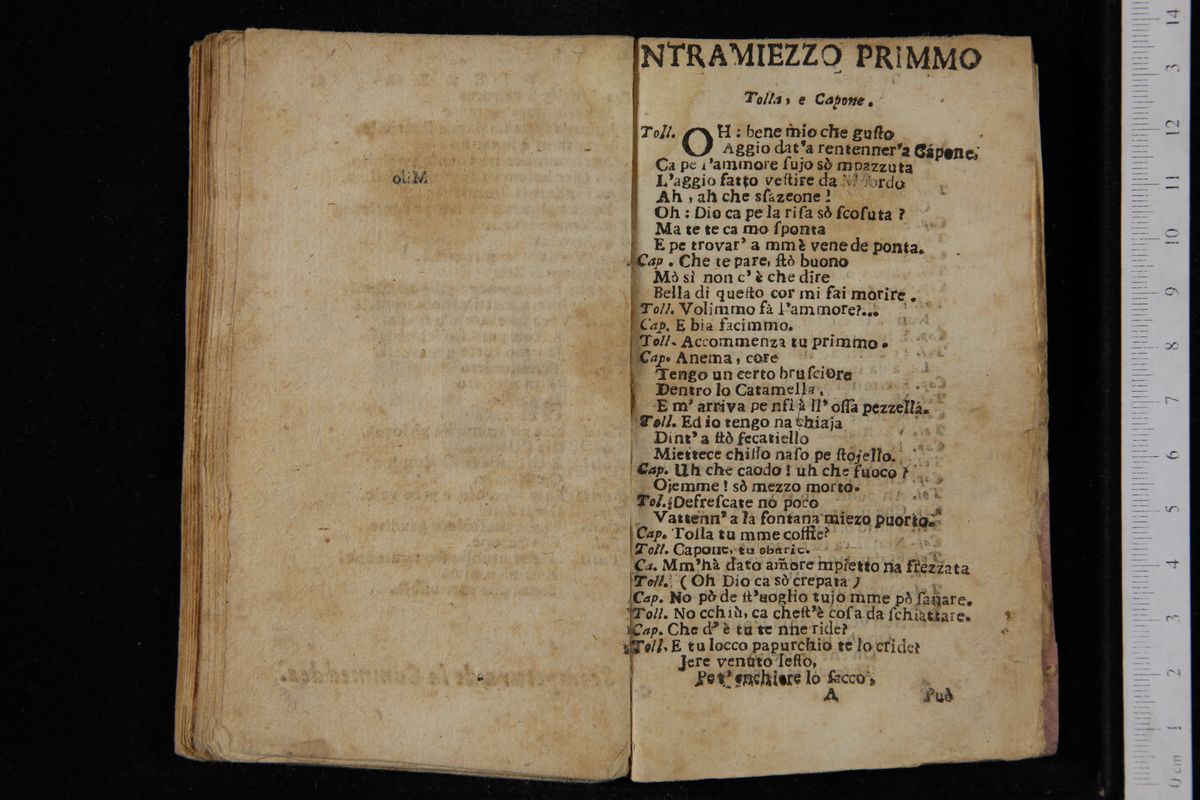 NTRAMIEZZO PRIMMO
Tolla, e Capone.
Toll. OH : bene mio che guſto
Aggio dat'a rentenner'a Capone,
Ca pe l'ammore ſujo sò mpazzuta
L'aggio fatto veſtire da
Ah, ah che sfazeone !
Oh : Dio ca pe la riſa sò ſcoſuta ?
Ma te te ca mo ſponta
E pe trovar' a mmè vene de ponta.
Cap. Che te pare, ſtò buono
Mò sì non c' è che dire
Bella di queſto cor mi fai morire.
Toll. Volimmo fà l'ammore?...
Cap. E bia facimmo.
Toll. Accommenza tu primmo.
Cap. Anema, core
Tengo un certo bruſciore
Dentro lo Catamella,
E m' arriva pe nfi à ll' oſſa pezzella.
Toll. Ed io tengo na chiaja
Dint' a ſtò ſecatiello
Miettece chiſſo naſo pe ſtojello.
Cap. Uh che caodo ! uh che fuoco ?
Ojemme ! sò mezzo morto.
Tol. Defreſcate nò poco
Vattenn' a la fontana miezo puorto.
Cap. Tolla tu mme coffie?
Toll. Capone, tu sbarie.
Ca. Mm'hà dato amore mpietto na frezzata
Toll. ( Oh Dio ca sò crepata )
Cap. No pò de ſt'uoglio tujo mme pò ſanare.
Toll. No cchiù, ca cheſt'è coſa da ſchiattare.
Cap. Che d' è tu te nne ride?
Toll. E tu locco papurchio te lo cride?
Jere venuto leſto,
Pet' enchiere lo ſacco,
A Può
Milo
Scompetura de la Commeddea.